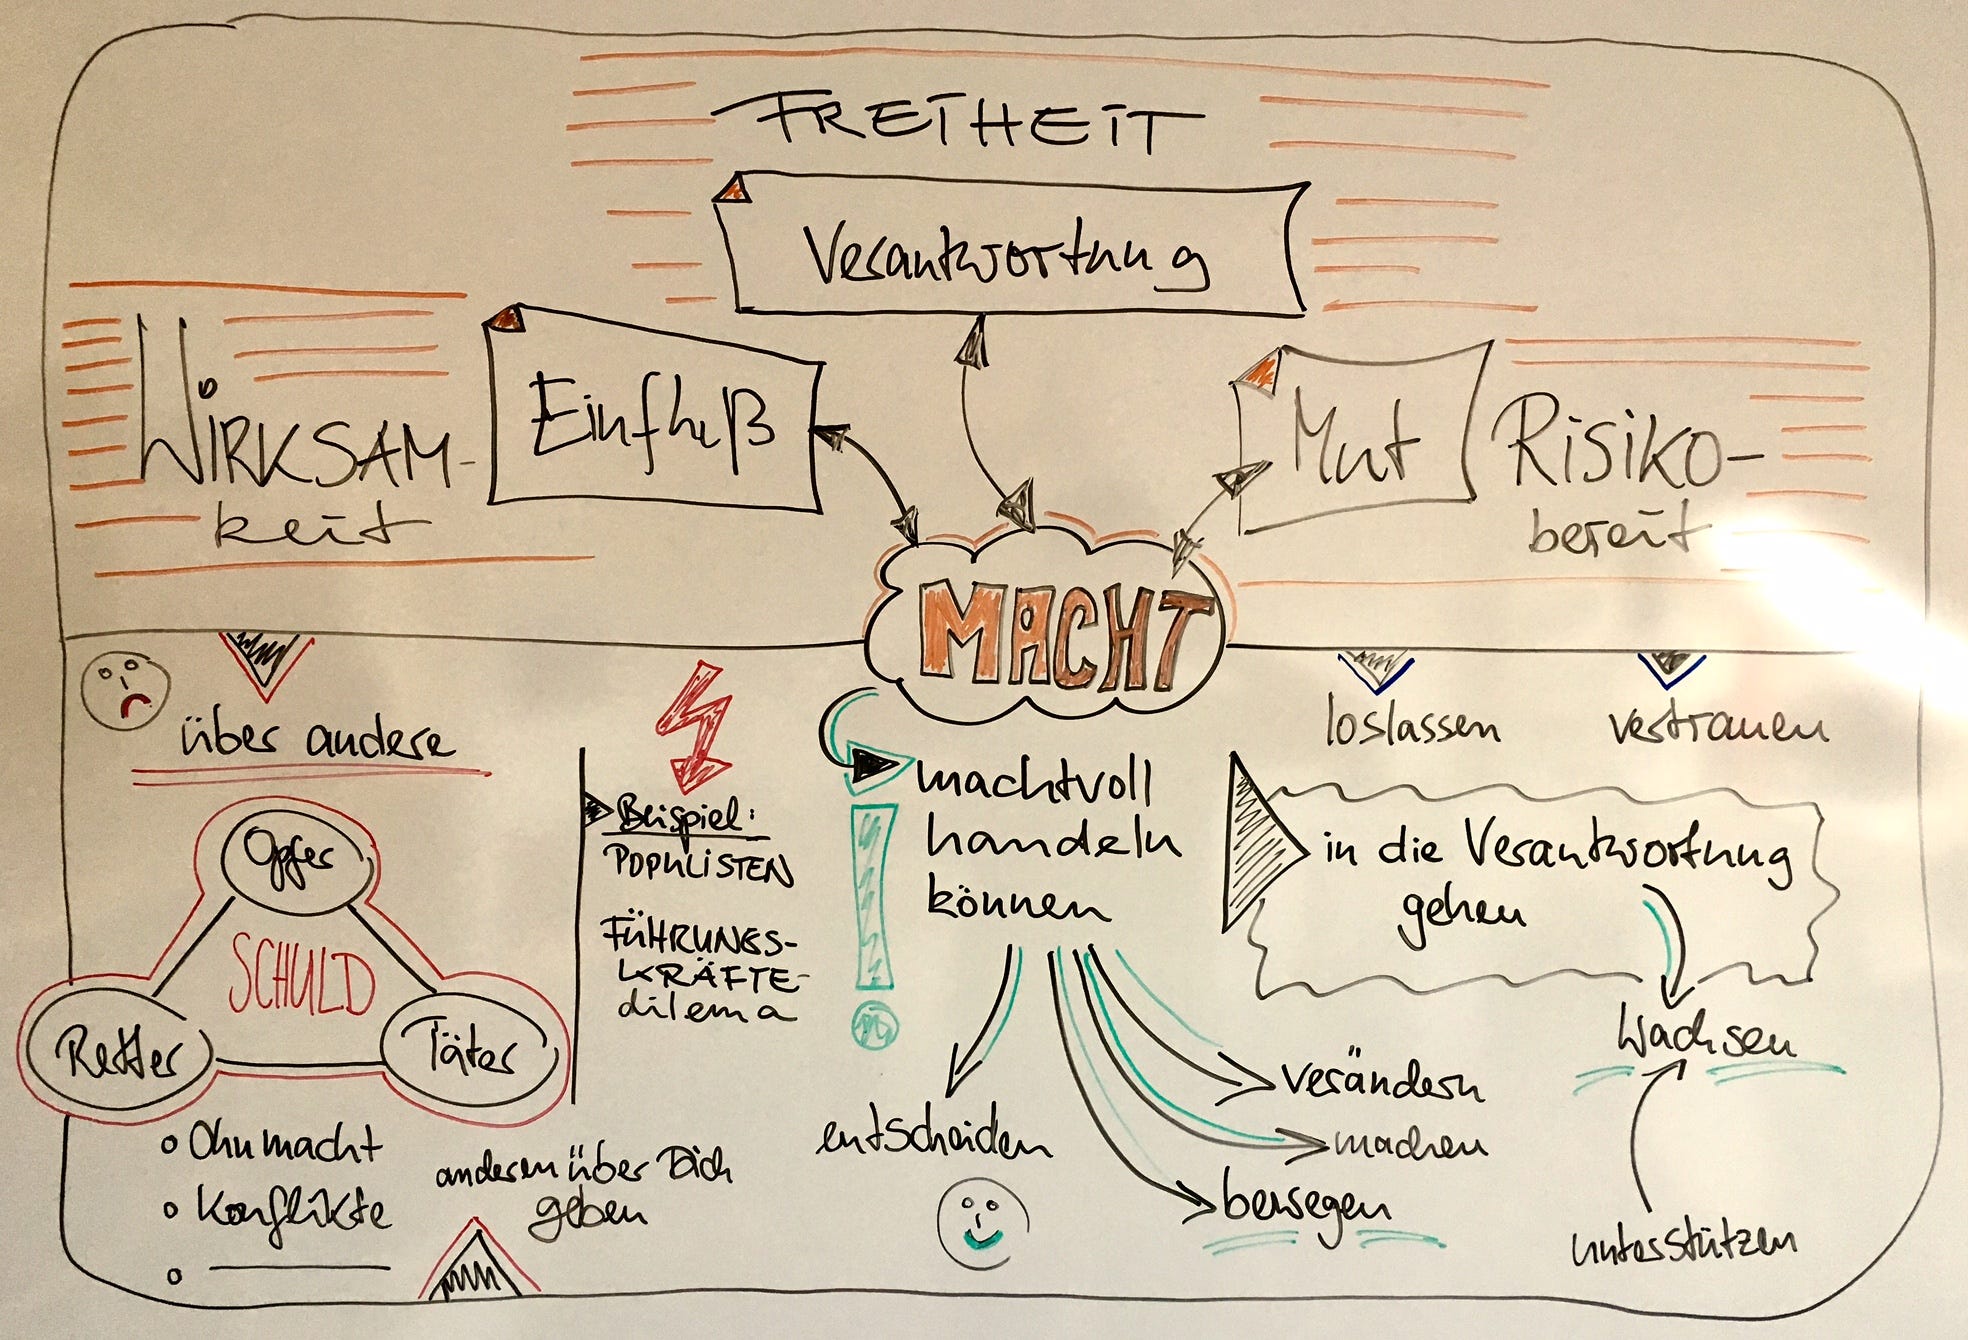 FREIHEIT
Verantwortung
WIRKSAM-
keit
Einfluß
Mut
RISIKO-
bereit
MACHT
über andere
Opfer
SCHULD
Retter
Täter
o Ohnmacht
o Konflikte
o
anderen über Dich
geben
Beispiel:
POPULISTEN
FÜHRUNGS-
KRÄFTE-
dilema
machtvoll
handeln
können
entscheiden
verändern
machen
bewegen
loslassen
vertrauen
in die Verantwortung
gehen
Wachsen
unterstützen